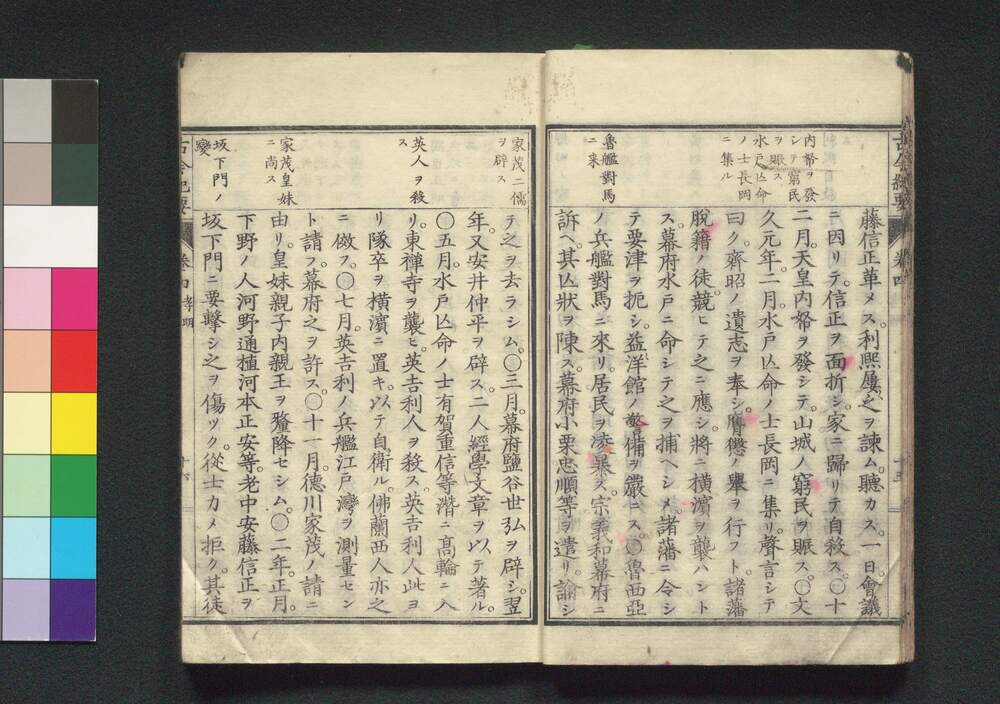 内帑ヲ發
シテ窮民
ヲ賑ス
水戸亾命
ノ士長岡
ニ集ル
魯艦對馬
ニ来
藤信正革メス。利熙屢之ヲ諫ム。聽カス。一日會議
ニ因リテ。信正ヲ面折シ。家ニ歸リテ自殺ス。〇十
二月。天皇内帑ヲ發シテ。山城ノ窮民ヲ賑ス。〇文
久元年。二月。水戸亾命ノ士長岡ニ集リ。聲言シテ
曰ク。齊昭ノ遺志ヲ奉シ。膺懲ノ舉ヲ行フト。諸藩
脫籍ノ徒。競ヒテ之ニ應シ。將ニ横濱ヲ襲ハント
ス。幕府水戸ニ命シテ之ヲ捕ヘシメ。諸藩ニ令シ
テ要津ヲ扼シ。益洋館ノ警備ヲ嚴ニス。〇魯西亞
ノ兵艦對馬ニ來リ。居民ヲ凌暴ス。宗義和幕府ニ
訴ヘ。其亾狀ヲ陳ス。幕府小栗忠順等ヲ遣リ。諭シ
家茂二儒
ヲ辟ス
英人ヲ殺
ス
家茂皇妹
ニ尚ス
坂下門ノ
變
テ之ヲ去ラシム。〇三月。幕府鹽谷世弘ヲ辟シ。翌
年。又安井仲平ヲ辟ス。二人經學文章ヲ以テ著ル。
〇五月。水戸亾命ノ士有賀重信等。潛ニ高輪ニ入
リ。東禅寺ヲ襲ヒ。英吉利人ヲ殺ス。英吉利人此ヨ
リ隊卒ヲ横濱ニ置キ。以テ自衛ル。佛蘭西人亦之
ニ倣フ。〇七月。英吉利ノ兵艦江戸灣ヲ測量セン
ト請フ。幕府之ヲ許ス。〇十一月。德川家茂ノ請ニ
由リ。皇妹親子内親王ヲ釐降セシム。〇二年。正月。
下野ノ人河野通植河本正安等。老中安藤信正ヲ
坂下門ニ要擊シ之ヲ傷ツク。從士カメ拒ク。其徒
古今紀要
卷四 孝明
十六